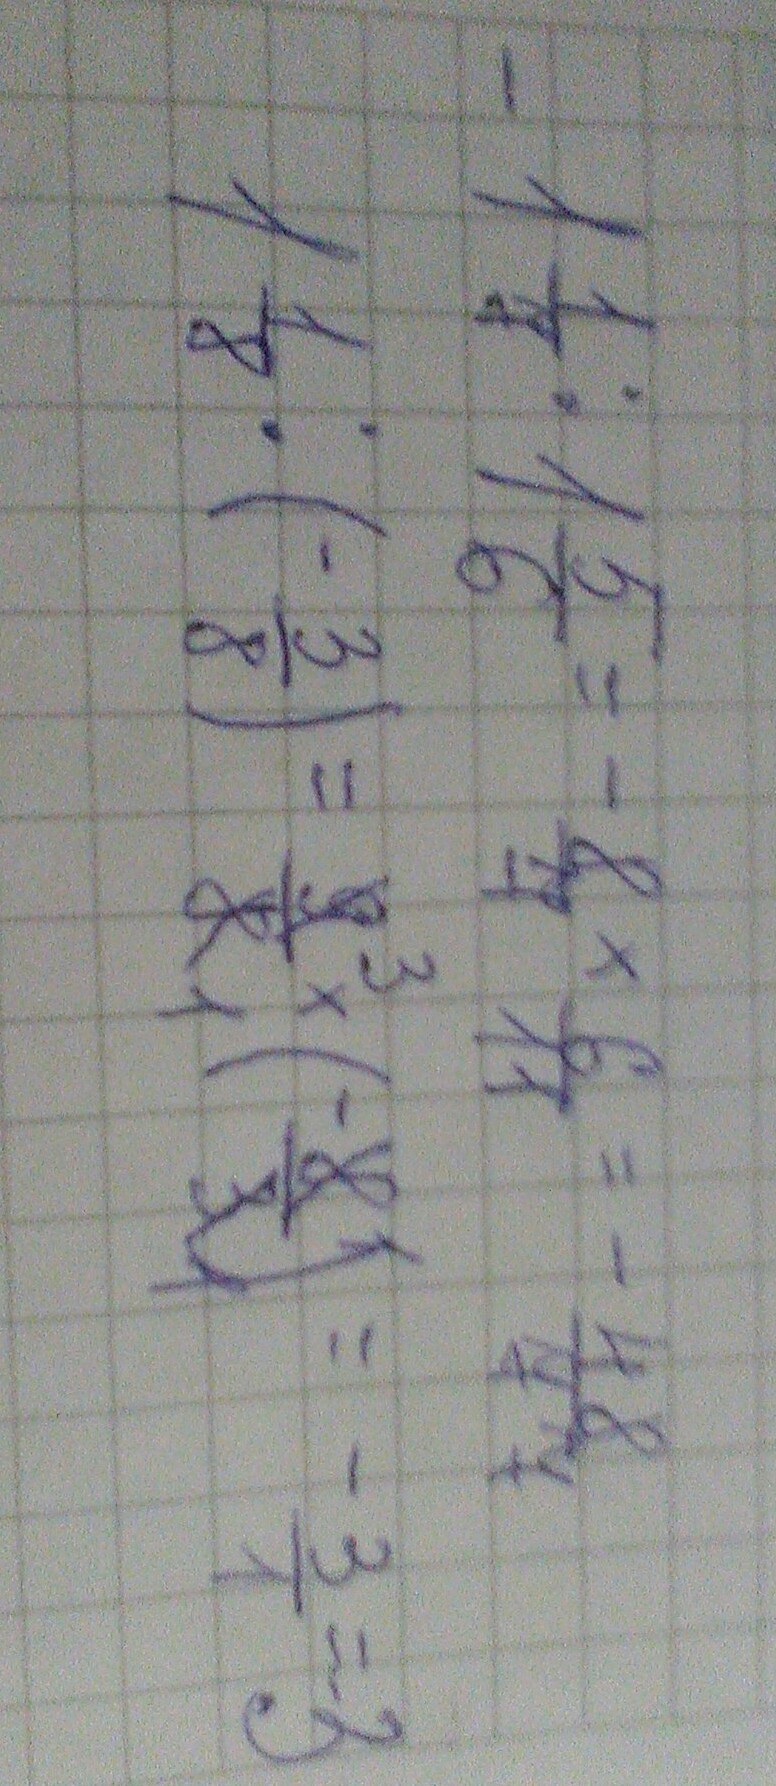 - 1 1/7 : 1 5/6 = - 8/7 × 6/11 = - 48/77
1 1/8 : (- 3/8) = 9 3/8 1 × (- 8 1/3 1) = - 3/1 = -3